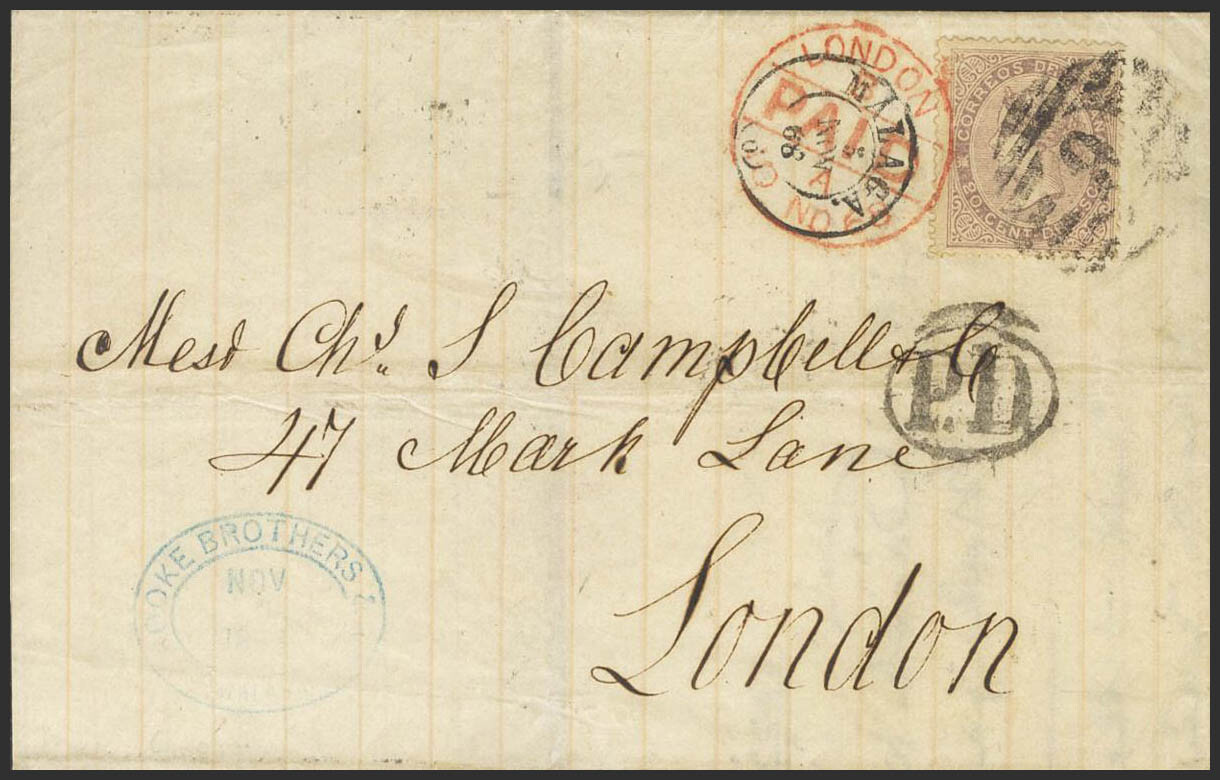 LONDON
PAID
NO 68
MALAGA.
68
CORREOS DE
20 CENT. DE ESC
P.D.
Mesd Chs. S Campbell & C
47 Mark Lane
London
OKE BROTHERS
NOV